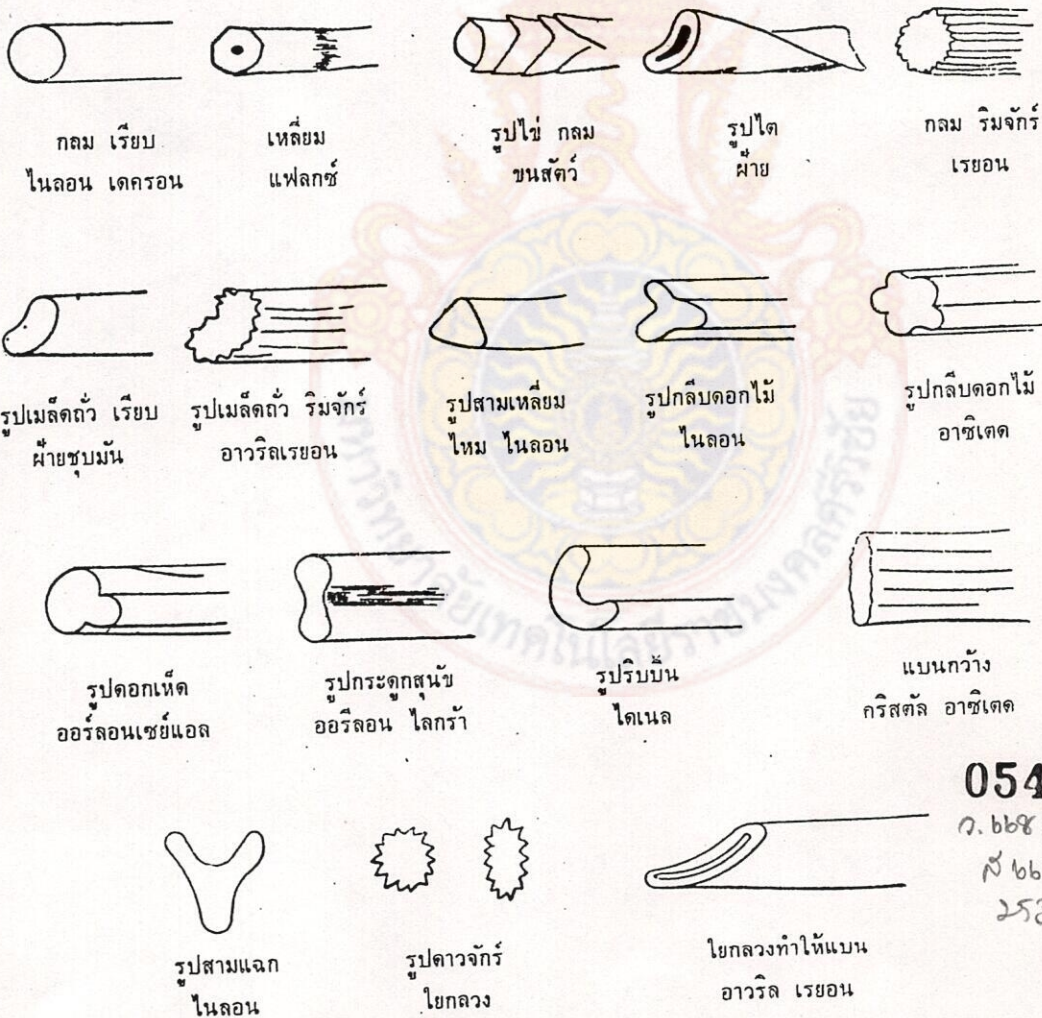 กลม เรียบ
ไนลอน เดครอน
เหลี่ยม
แฟลกซ์
รูปไข่ กลม
ขนสัตว์
รูปไต
ฝ้าย
กลม ริมจักร์
เรยอน
รูปเมล็ดถั่ว เรียบ
ฝ้ายชุบมัน
รูปเมล็ดถั่ว ริมจักร์
อาวริลเรยอน
รูปสามเหลี่ยม
ไหม ไนลอน
รูปกลีบดอกไม้
ไนลอน
รูปกลีบดอกไม้
อาซิเตด
รูปดอกเห็ด
ออร์ลอนเซย์แอล
รูปกระดูกสุนัข
ออรีลอน ไลกร้า
รูปริบบิ้น
ไดเนล
แบนกว้าง
กริสตัล อาซิเตด
มหาวิทยาลัยเทคโนโลยีราชมงคลศรีวิชัย
054
รูปสามแฉก
ไนลอน
รูปดาวจักร์
ใยกลวง
ใยกลวงทำให้แบน
อาวริล เรยอน